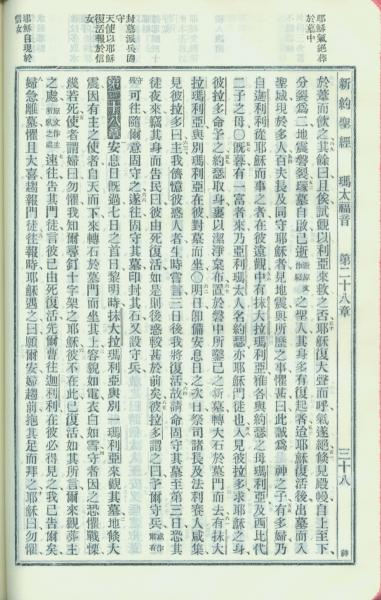 新約聖經 瑪太福音 第二十八章 三十八 神
耶穌氣絕葬
於墓中
封墓張兵防
守
天使以耶穌
復活報於信
女
耶穌自現於
信女
於葦而飲之其餘曰且俟試觀以利亞來救之否耶穌復大聲而呼氣遂絕條見殿幔自上至下
分裂爲二地震磐裂墳墓自啟已逝之聖人其身多有復起者迨耶穌復活後出墓而入
聖城現於多人百夫長及同守耶穌者見地震與所歷之事懼甚曰此誠爲神之子有多婦乃
自迦利利從耶穌而事之者在彼遠觀中有抹大拉瑪利亞雅各與約瑟之母瑪利亞及西比代
二子之母〇旣暮有一富者來乃亞利瑪太人名約瑟亦耶穌門徒也入見彼拉多求耶穌之身
彼拉多命予之約瑟取身裹以潔淨枲布置於磐中所鑿己之新墓轉大石於墓門而去有抹大
拉瑪利亞與別瑪利亞在彼對墓而坐〇明日卽備安息日之次日祭司諸長及法利賽人咸集
見彼拉多曰主我儕憶彼惑人者生時嘗言三日後我將復活故請命固守其墓至第三日恐其
徒夜來竊其身而告民曰彼由死復活如是則後惑較甚於前矣彼拉多謂之曰予爾守兵
可往隨爾意固守之遂往固守其墓用封其石又設守兵
第二十八章 安息日旣過七日之首日黎明時抹大拉瑪利亞與別一瑪利亞來觀其墓地倏大
震因有主之使者自天而下來轉石於墓門而坐其上容貌如電衣白如雪守者因之恐懼戰慄
幾若死使者謂婦曰勿懼我知爾尋釘十字架之耶穌彼不在此已復活如其所言爾來觀葬主
之處速往告其門徒言彼已由死復活先爾曹往迦利利在彼必得見之我已告爾矣
婦急離墓懼且大喜趨報門徒往報時耶穌遇之曰願爾安婦趨前抱其足而拜之耶穌曰勿懼